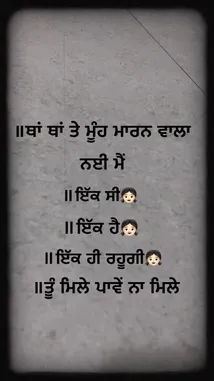 ॥ਥਾਂ ਥਾਂ ਤੇ ਮੂੰਹ ਮਾਰਨ ਵਾਲਾ
ਨਈ ਮੈਂ
॥ਇੱਕ ਸੀ👧🏻
॥ਇੱਕ ਹੈ👧🏻
॥ਇੱਕ ਹੀ ਰਹੂਗੀ👧🏻
॥ਤੂੰ ਮਿਲੇ ਪਾਵੇਂ ਨਾ ਮਿਲੇ